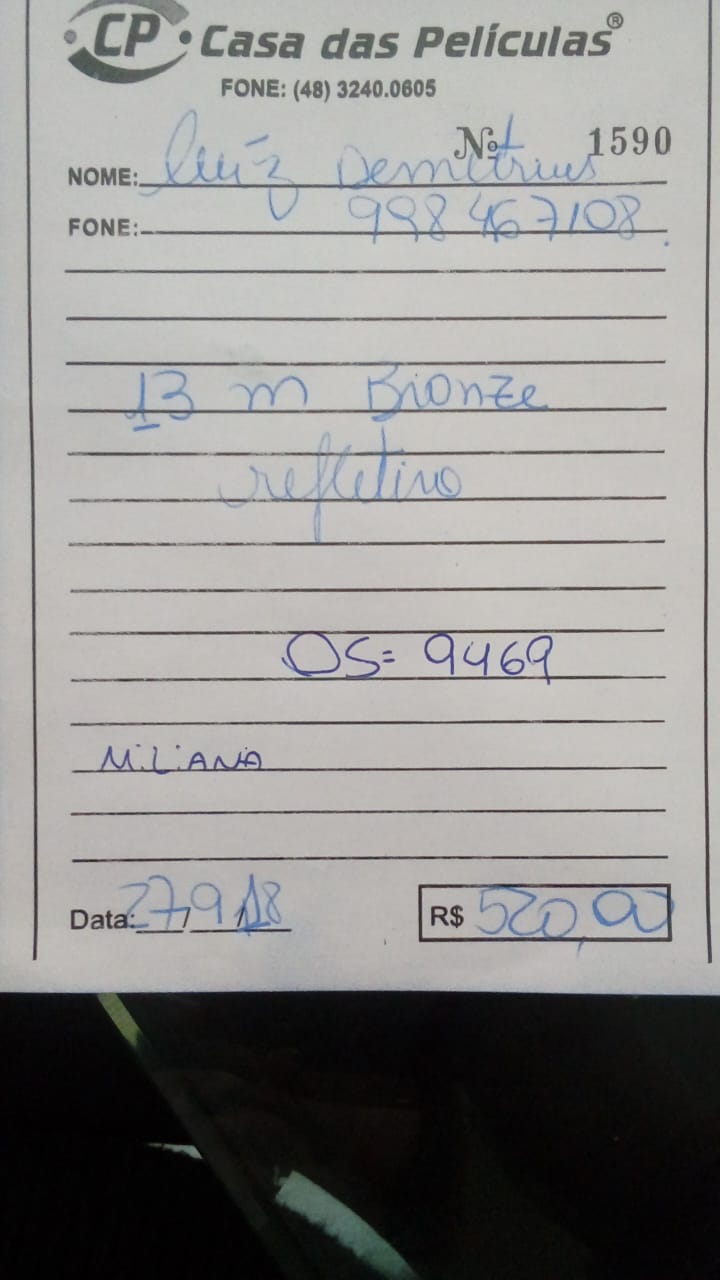 CP Casa das Películas®
FONE: (48) 3240.0605
Nº 1590
NOME: Luiz Demetrius
FONE: 998467108
13 m Bronze
refletivo
OS= 9469
MiLiANA
Data: 27/9/18 R$ 520,00